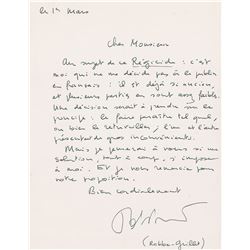 le 1er Mars
Cher Monsieur
Au sujet de ce Régicide : c'est
moi qui ne me décide pas à le publier
en français : il est déjà si ancien,
et plusieurs parties en sont assez faibles.
Une décision serait à prendre sur le
principe : le faire paraître tel quel, ou
bien le retravailler, l'un et l'autre
présentent de gros inconvénients.
Mais je penserai à vous si une
solution, tout à coup, s'impose
à moi. Et je vous remercie pour
votre proposition.
Bien cordialement
(Robbe-Grillet)